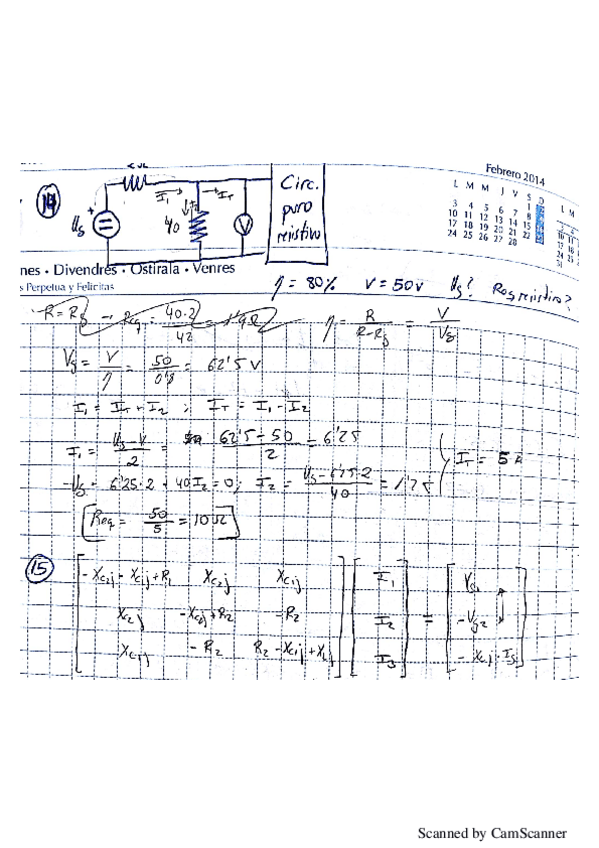 2Ω
14
I₁
I_T
Circ. puro resistivo
Ug
+
40
I₂
V
Febrero 2014
L M M J V S D
1 2
3 4 5 6 7 8 9
10 11 12 13 14 15 16
17 18 19 20 21 22 23
24 25 26 27 28
L M
nes • Divendres • Ostirala • Venres
s Perpetua y Felicitas
η = 80% V = 50v Ug? Req resistivo?
R = Rg → Req = 40·2/42 = 1'9Ω η = R/(R-Rg) = V/Vg
Vg = V/η = 50/0'8 = 62'5 V
I₁ = I_T + I₂ ; I_T = I₁ - I₂
I₁ = (Ug - V)/2 = (62'5 - 50)/2 = 6'25
-Ug + 6'25·2 + 40 I₂ = 0; I₂ = (Ug - 6'25·2)/40 = 1'25 I_T = 5 A
Req = 50/5 = 10Ω
15
[-Xc₂j - Xc₁j + R₁ Xc₂j Xc₁j] [I₁] = [Vg₁]
[Xc₂j -Xc₂j + R₂ -R₂] [I₂] = [-Vg₂]
[Xc₁j -R₂ R₂ - Xc₁j + X_Lj] [I₃] = [-Xc₁j · Is]
Scanned by CamScanner